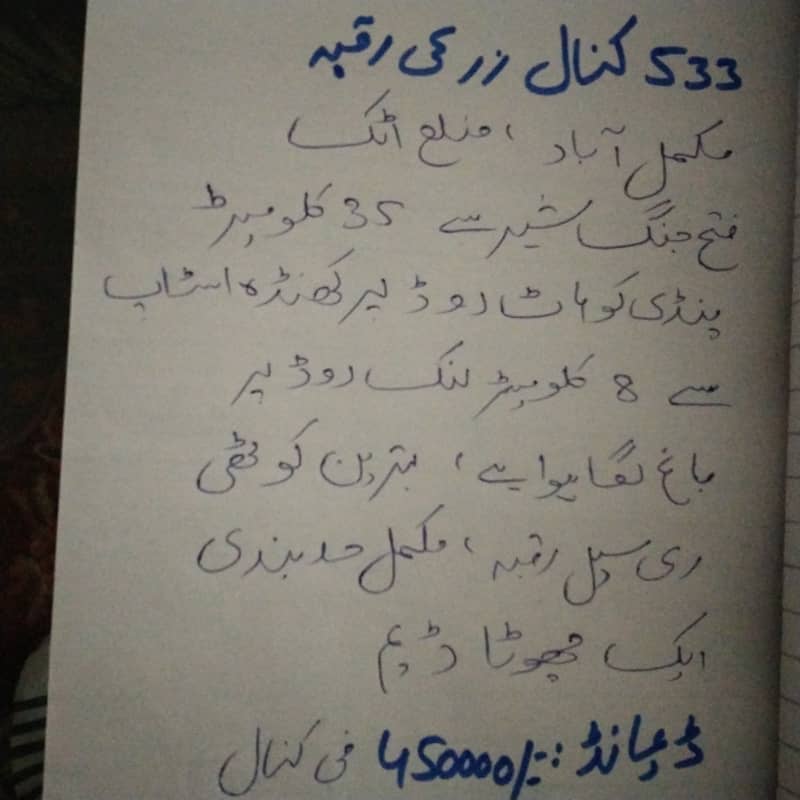 533 کنال زرعی رقبہ
مکمل آباد ، ضلع اٹک
فتح جنگ شہر سے 35 کلومیٹر
پنڈی کوہاٹ روڈ پر کھنڈہ اسٹاپ
سے 8 کلومیٹر لنک روڈ پر
باغ لگا ہوا ہے ، بہترین کوٹھی
ری سیل رقبہ ، مکمل حد بندی
ایک چھوٹا ڈیم
ڈیمانڈ :- 450000/= فی کنال